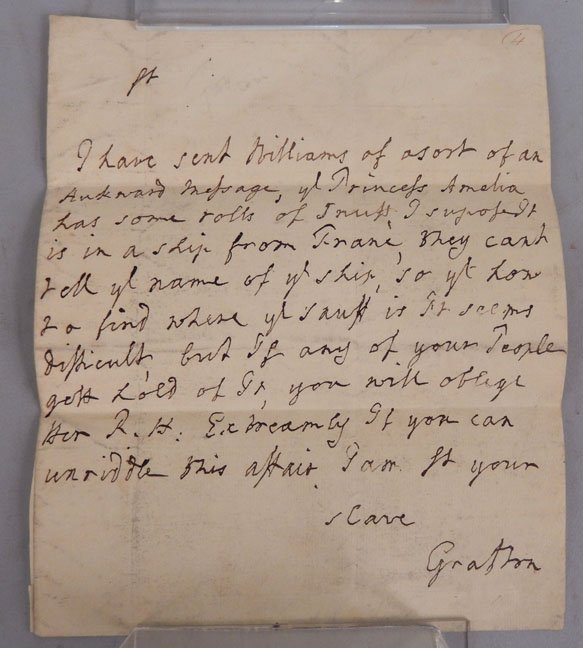 4
Sr
I have sent Williams of a sort of an
Aukward Message, yt Princess Amelia
has some rolls of Snuff I suposed It
is in a ship from Frane, they cant
tell ye name of ye ship, so yt how
to find where ye snuff is It seems
difficult, but If any of your People
gett hold of It, you will oblige
Her R. H: Extreamly If you can
unriddle this affair I am Sr your
slave
Grafton